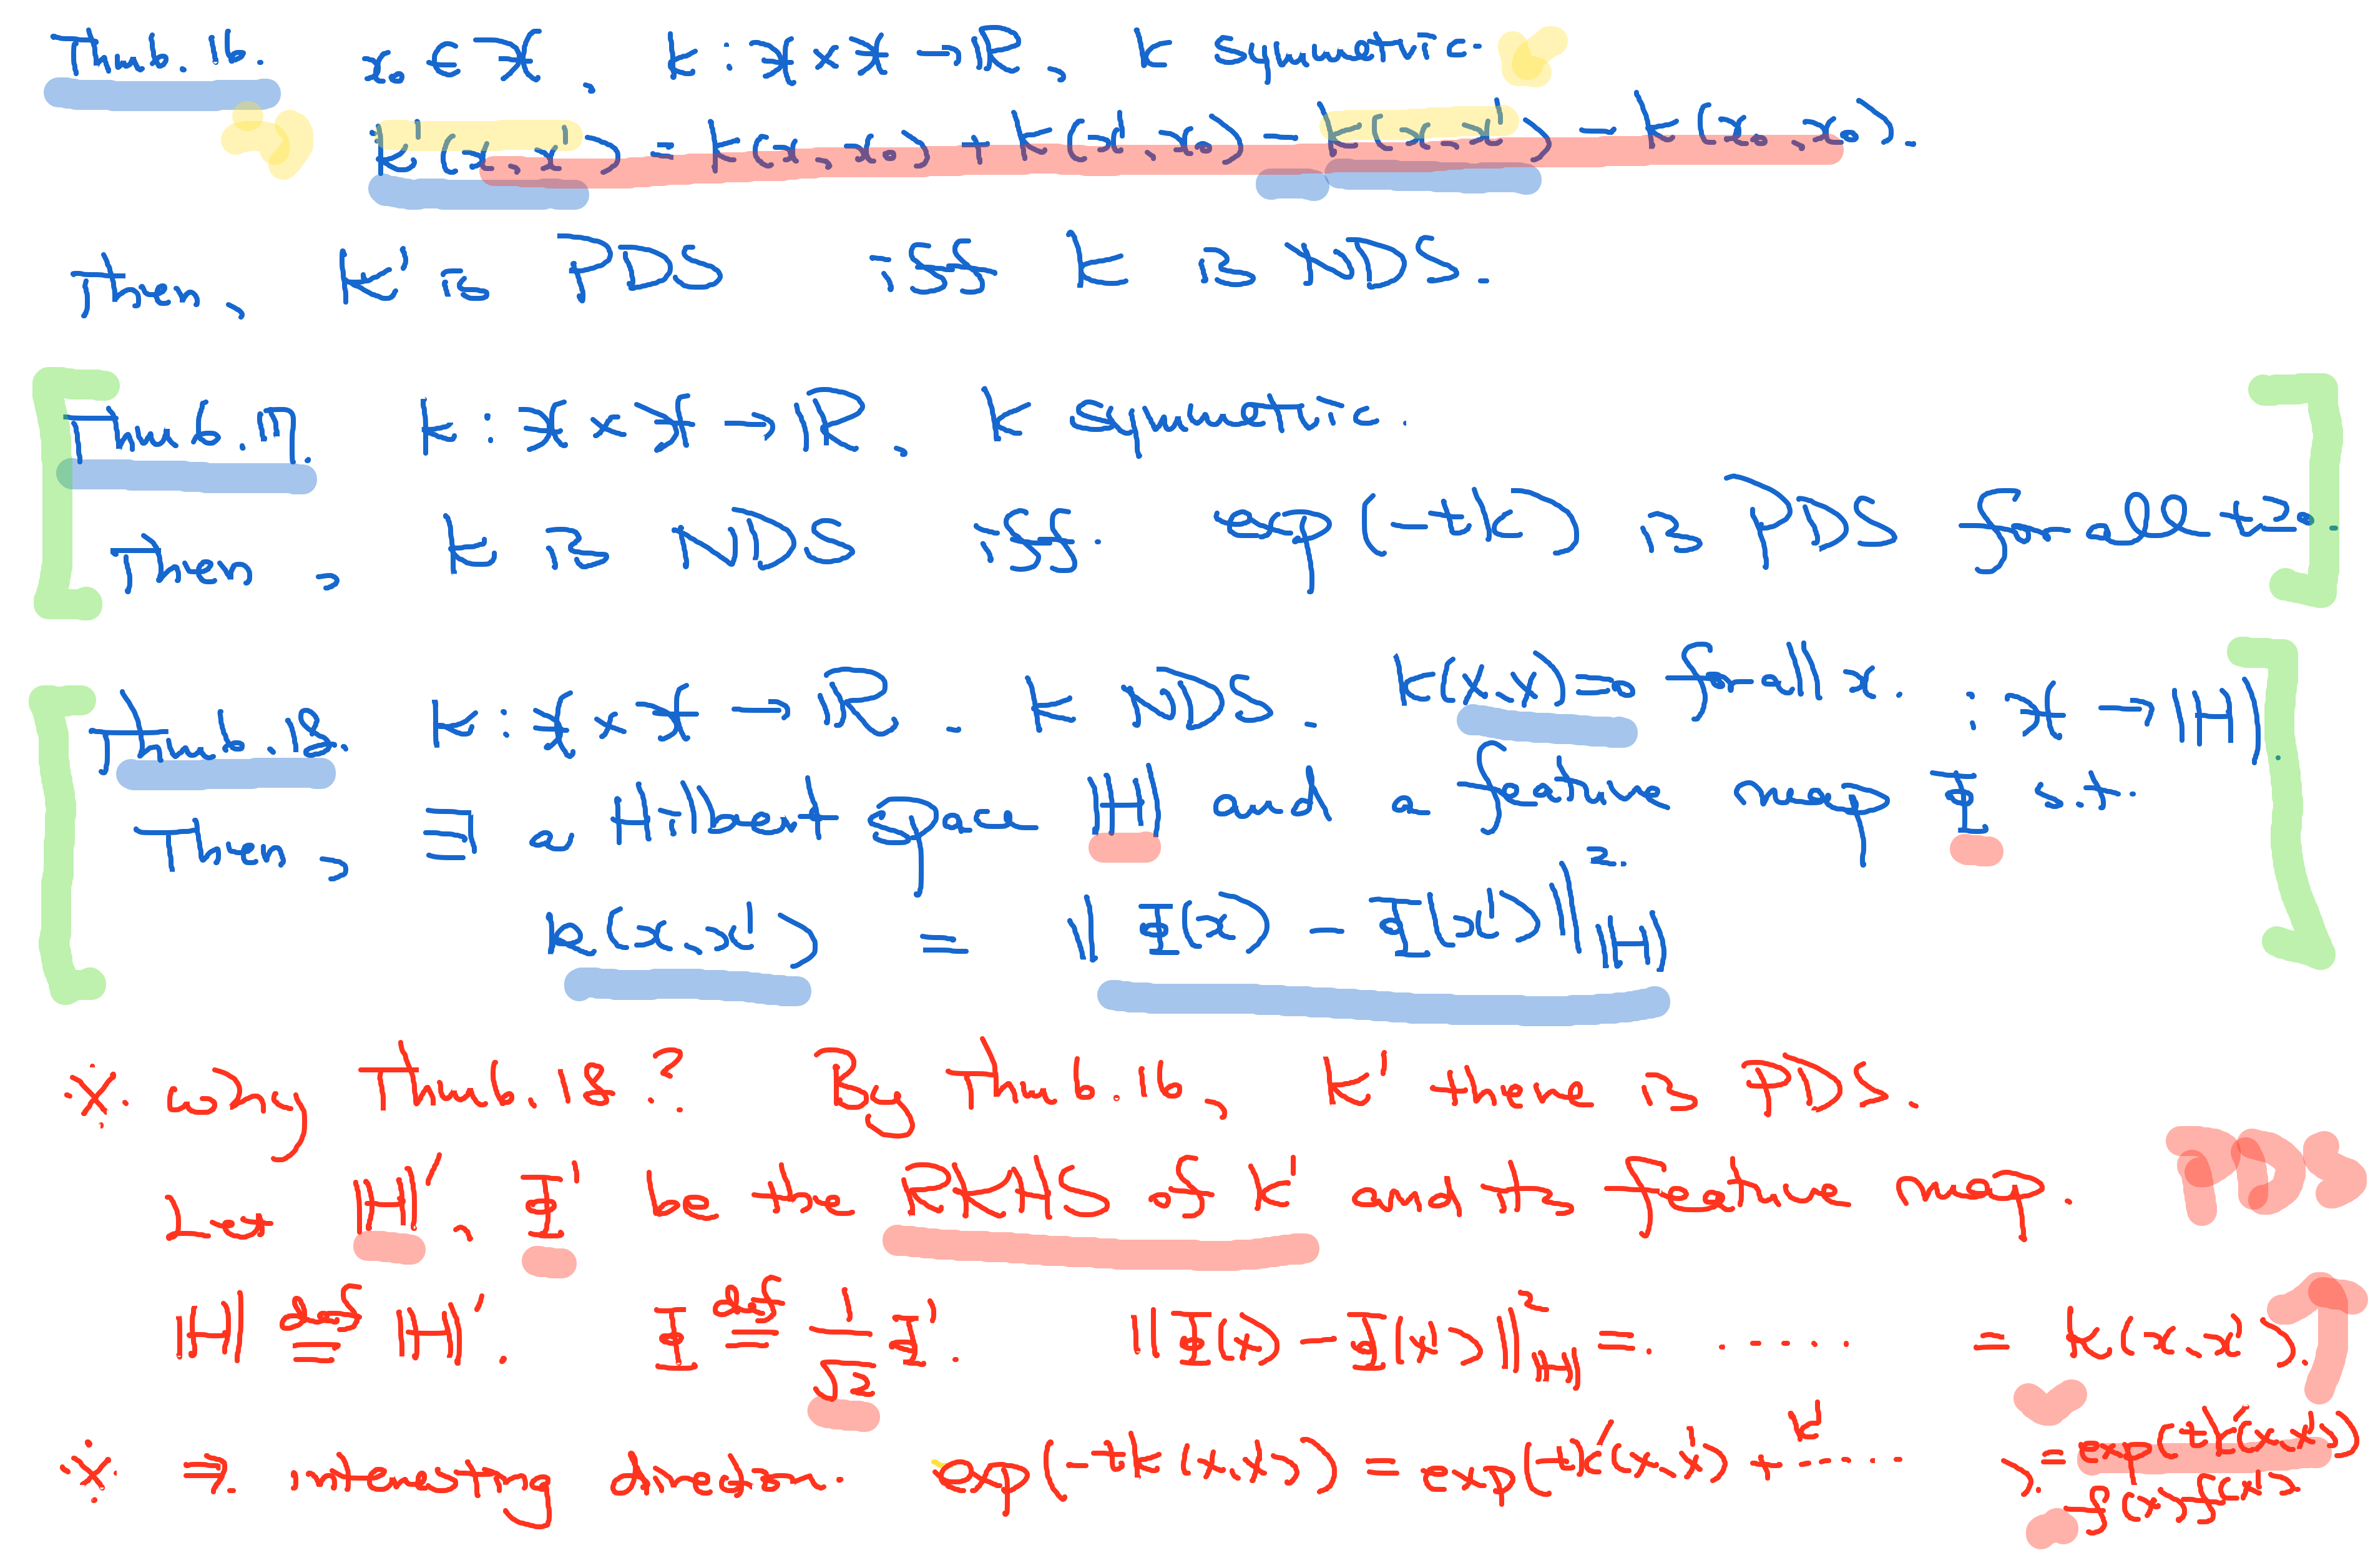 Thm 6.16. x₀ ∈ X, K : X × X → ℝ, K symmetric.
K'(x, x') = K(x, x₀) + K(x', x₀) − K(x, x') − K(x₀, x₀).
Then, K' is PDS iff K is NDS.
Thm 6.17. K : X × X → ℝ, K symmetric.
Then, K is NDS iff. exp(−tK) is PDS for all t≥0.
Thm 6.18. K : X × X → ℝ. K NDS. K(x,x)=0 for all x.
Then, ∃ a Hilbert space ℍ and a feature map Φ s.t. : X → ℍ.
K(x, x') = ‖Φ(x) − Φ(x')‖²_ℍ
※. why Thm 6.18? By Thm 6.16, K' there is PDS.
Let ℍ', Φ' be the RKHS of K' and its feature map. PDS
ℍ ≝ ℍ'. Φ ≝ 1/√2 Φ'. ‖Φ(x) − Φ(x')‖²_ℍ = ...... = K(x, x').
※ ⇒ interesting direction. exp(−tK(x,x')) = exp(tK'(x,x') + ......) = exp(tK'(x,x'))
f(x)f(x')